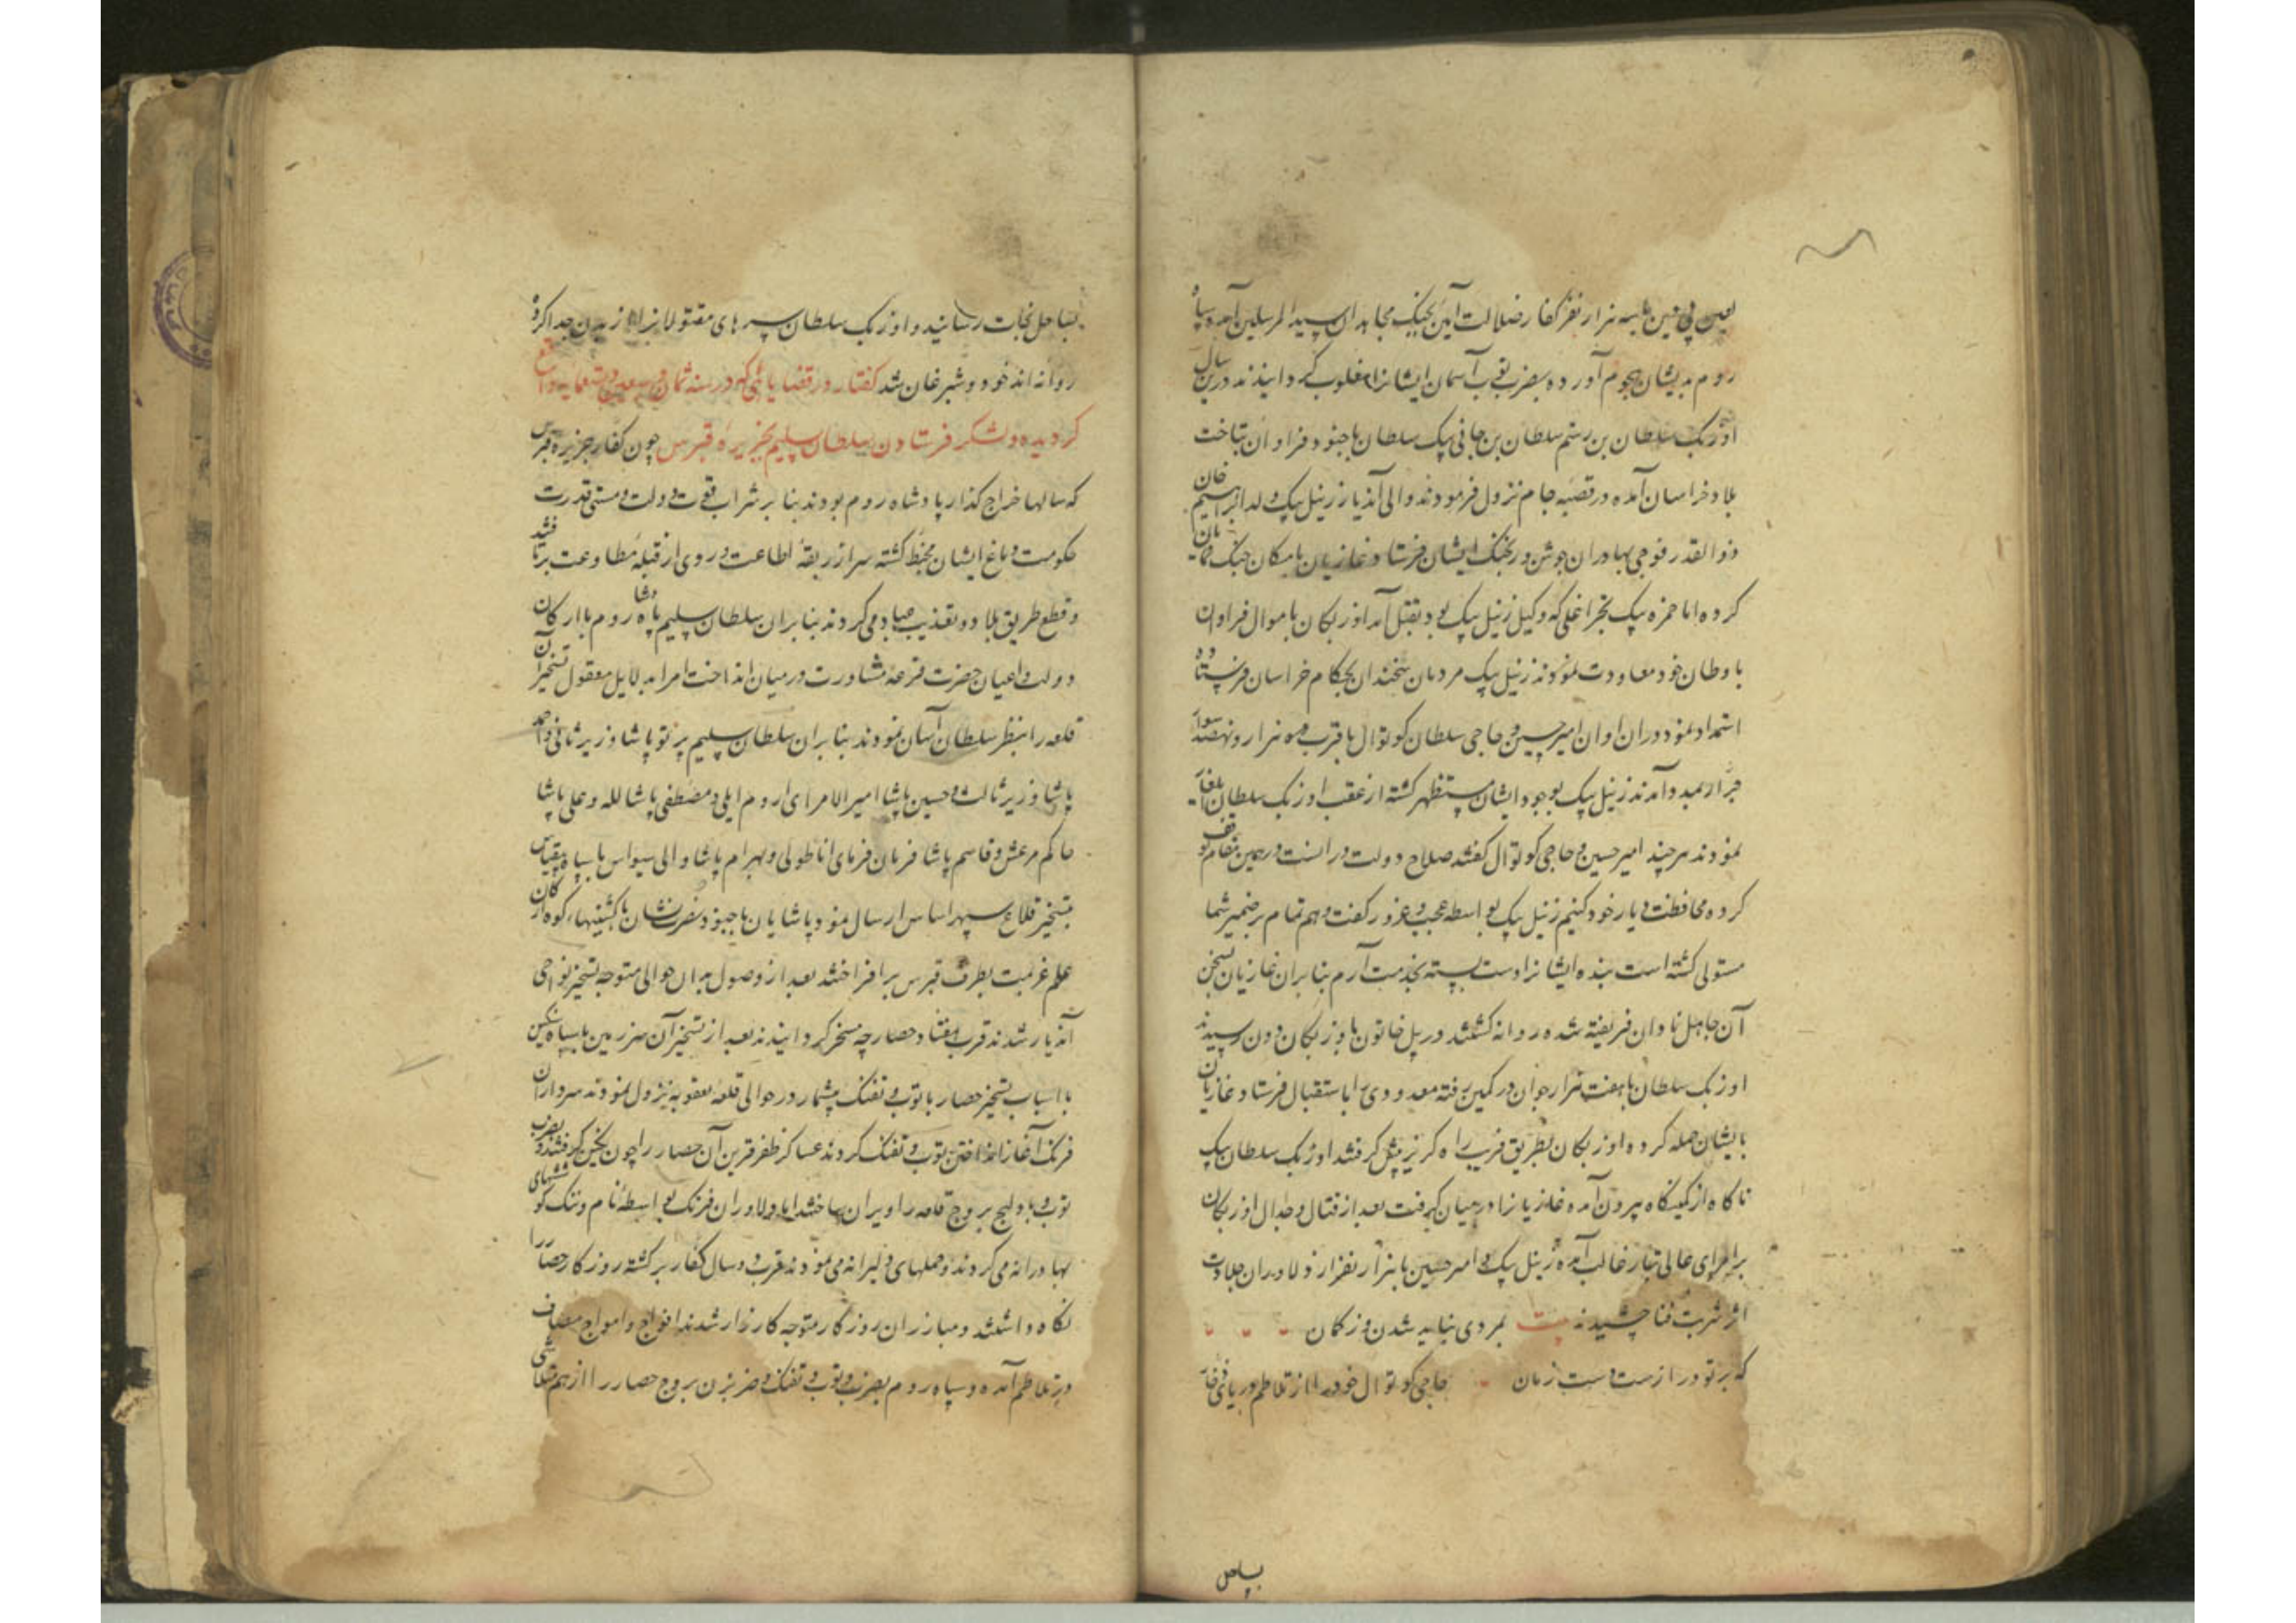 لعین بی دین با سه هزار نفر کفار ضلالت آیین بجنگ مجاهدان سید المرسلین آمده سپاه
روم بدیشان هجوم آورده بضرب توپ آسمان ایشانرا مغلوب گردانیدند درین سال
اوزبک سلطان بن رستم سلطان بن جانی بیک سلطان با جنود فراوان بتاخت
بلاد خراسان آمده در قصبه جام نزول فرمودند والی آندیار زینل بیک ولد ابراهیم خان
ذوالقدر فوجی بهادران جوشن ور بجنگ ایشان فرستاد غازیان بامکان جنگ نمایان
کرده اما حمزه بیک که وکیل زینل بیک بود بقتل آمد اوزبکان با موال فراوان
باوطان خود معاودت نمودند زینل بیک مردمان سخندان بحکام خراسان فرستاده
استمداد نمود دران اوان امیر حسین و حاجی سلطان کوتوال با قرب دو هزار و نهصد سوار
جرار بمدد آمدند زینل بیک بوجود ایشان مستظهر گشته از عقب اوزبک سلطان ایلغار
نمودند هر چند امیر حسین و حاجی کوتوال گفتند صلاح دولت در آنست در همین مقام توقف
کرده محافظت دیار خود کنیم زینل بیک بواسطه عجب و غرور گفت وهم تمام بر ضمیر شما
مستولی گشته است بنده ایشانرا دست بسته بخدمت آرم بنابران غازیان بسخن
آن جاهل نادان فریفته شده روانه گشتند در پل خاتون باوزبکان دون رسیدند
اوزبک سلطان با هفت هزار جوان در کمین رفته معدودی را باستقبال فرستاد غازیان
بایشان حمله کرده اوزبکان بطریق فریب راه گریز پیش گرفتند اوزبک سلطان بیک
ناکاه از کمینگاه بیرون آمده غازیانرا در میان گرفت بعد از قتال و جدال اوزبکان
بر امرای عالی تبار غالب آمده زینل بیک و امیر حسین با هزار نفر از دلاوران جلادت
اثر شربت فنا چشیدند بیت بمردی نباید شدن در گمان
که بر تو درازست دست زمان حاجی کوتوال خود را از تلاطم دریای فنا
بساحل
بساحل نجات رسانید و اوزبک سلطان سرهای مقتولانرا از بدن جدا کرده
روانه اندخود و شبرغان شد گفتار در قضایائی که در سنه ثمان و سبعین و تسعمایه واقع
گردیده و لشکر فرستادن سلطان سلیم بجزیره قبرس چون کفار جزیره قبرس
که سالها خراج گذار پادشاه روم بودند بنا بر شراب قوت دولت و مستی قدرت
حکومت دماغ ایشان مخبط گشته سر از ربقه اطاعت و روی از قبله مطاوعت برتافتند
و قطع طریق بلاد و تعذیب عباد می کردند بنابران سلطان سلیم پادشاه روم با ارکان
دولت و اعیان حضرت قرعه مشاورت در میان انداخت امرا بدلایل معقول تسخیر آن
قلعه را بنظر سلطان آسان نمودند بنابران سلطان سلیم پرتو پاشا وزیر ثانی و احمد
پاشا وزیر ثالث و حسین پاشا امیر الامرای روم ایلی و مصطفی پاشا لله و علی پاشا
حاکم مرعش و قاسم پاشا فرمان فرمای اناطولی و بهرام پاشا والی سیواس با سپاه بیقیاس
بتسخیر قلاع سپهر اساس ارسال نمود پاشایان با جنود نصرت نشان با کشتیهاء کوه ارکان
علم عزیمت بطرف قبرس برافراختند بعد از وصول بدان حوالی متوجه تسخیر نواحی
آندیار شدند قرب هفتاد حصارچه مسخر گردانیدند بعد از تسخیر آن سرزمین با سپاه سنگین
با اسباب تسخیر حصار با توپ و تفنگ بیشمار در حوالی قلعه معقوبه نزول نمودند سرداران
فرنگ آغاز انداختن توپ و تفنگ کردند عساکر ظفر قرین آن حصار را چون نگین گرفتند و بضرب
توپ و بادلیج بروج قلعه را ویران ساختند اما دلاوران فرنگ بواسطه نام و ننگ کوششهای
بهادرانه می کردند و حملهای دلیرانه می نمودند قرب دو سال کفار برگشته روزگار حصار را
نگاه داشتند و مبارزان روزگار متوجه کارزار شدند افواج و امواج مصاف
در تلاطم آمده و سپاه روم بضرب توپ و تفنگ و ضربزن بروج حصار را از هم